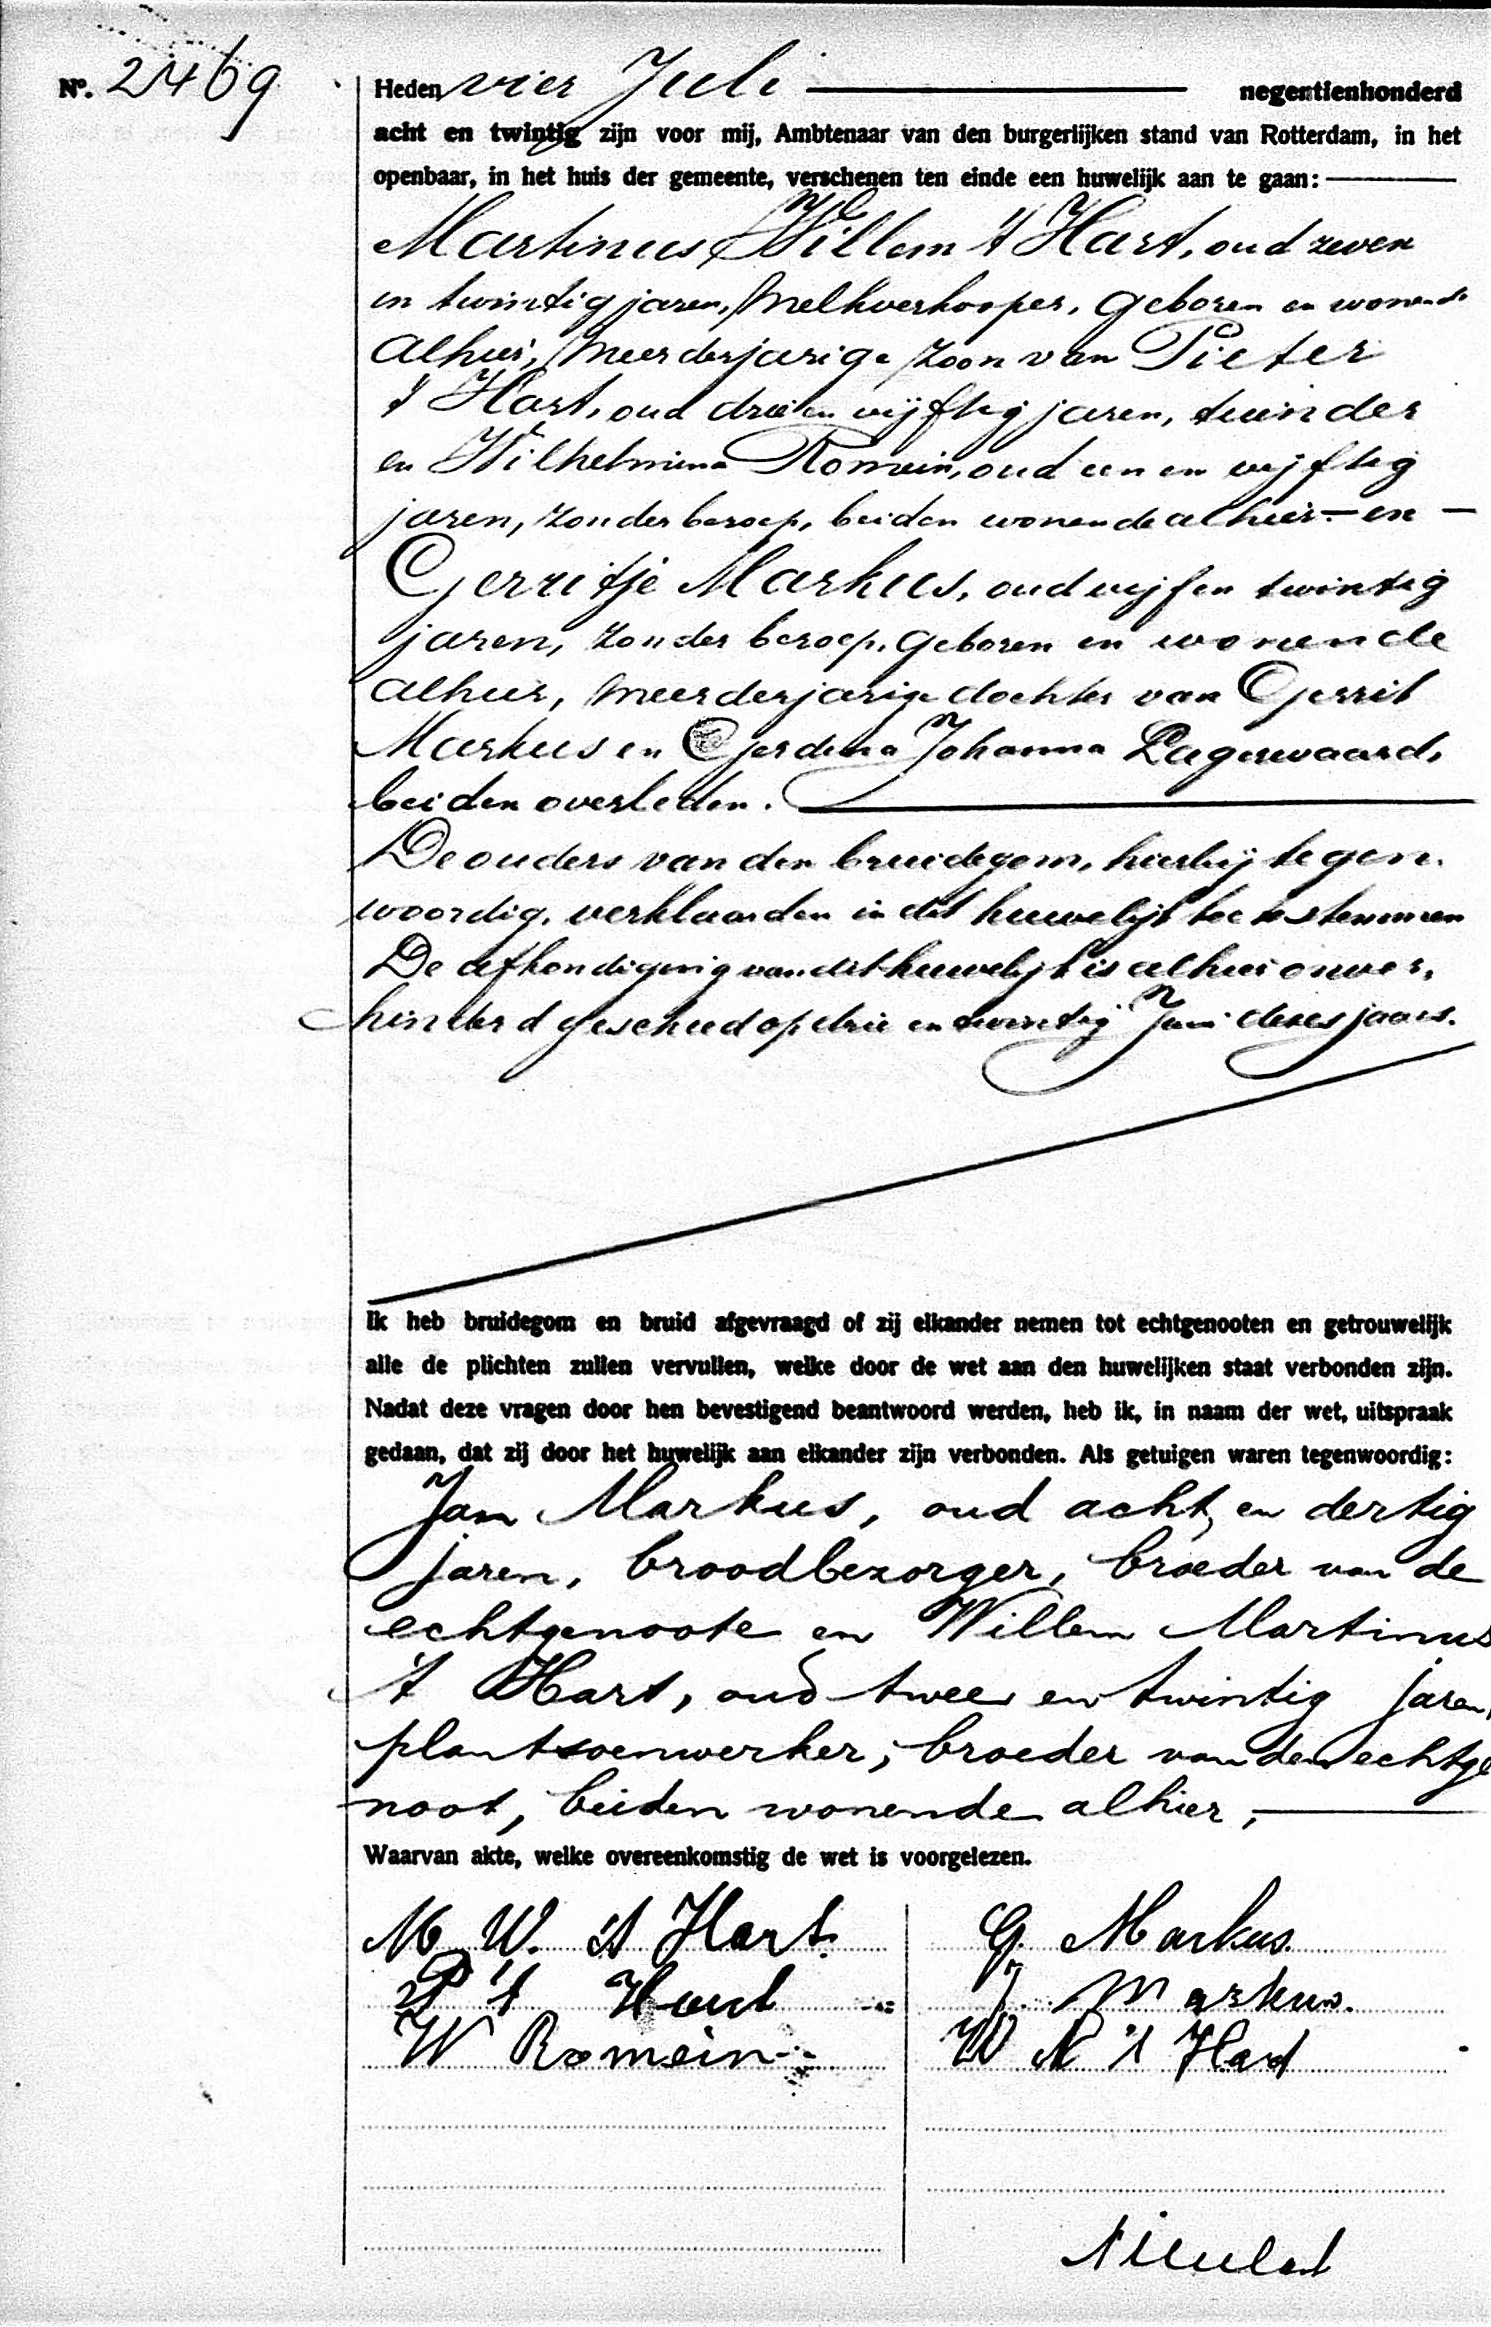 No. 2469
Heden vier Juli negentienhonderd
acht en twintig zijn voor mij, Ambtenaar van den burgerlijken stand van Rotterdam, in het
openbaar, in het huis der gemeente, verschenen ten einde een huwelijk aan te gaan:
Martinus Willem 't Hart, oud zeven
en twintig jaren, Melkverkooper, geboren en wonende
alhier, meerderjarige zoon van Pieter
't Hart, oud drie en vijftig jaren, tuinder
en Wilhelmina Romein, oud een en vijftig
jaren, zonder beroep, beiden wonende alhier. — en —
Gerritje Markus, oud vijf en twintig
jaren, zonder beroep, geboren en wonende
alhier, meerderjarige dochter van Gerrit
Markus en Gerdina Johanna Lagerwaard,
beiden overleden.
De ouders van den bruidegom, hierbij tegen-
woordig, verklaarden in dit huwelijk toe te stemmen
De afkondiging van dit huwelijk is alhier onver-
hinderd geschied op drie en twintig Juni dezes jaars.
Ik heb bruidegom en bruid afgevraagd of zij elkander nemen tot echtgenooten en getrouwelijk
alle de plichten zullen vervullen, welke door de wet aan den huwelijken staat verbonden zijn.
Nadat deze vragen door hen bevestigend beantwoord werden, heb ik, in naam der wet, uitspraak
gedaan, dat zij door het huwelijk aan elkander zijn verbonden. Als getuigen waren tegenwoordig:
Jan Markus, oud acht en dertig
jaren, broodbezorger, broeder van de
echtgenoote en Willem Martinus
't Hart, oud twee en twintig jaren,
plantsoenwerker, broeder van den echtge
noot, beiden wonende alhier,
Waarvan akte, welke overeenkomstig de wet is voorgelezen.
M W. 't Hart. G. Markus.
P 't Hart J. Markus.
W Romein W M 't Hart